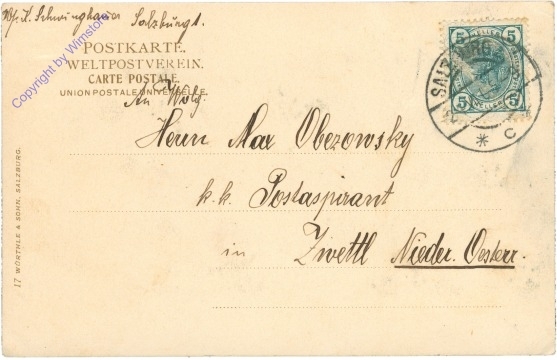 Salzburg 1.
POSTKARTE.
WELTPOSTVEREIN.
CARTE POSTALE
UNION POSTALE UNIVERSELLE.
An Wolg.
Herrn Max Oberowsky
k. k. Postaspirant
in Zwettl Nieder. Oesterr.
17 WÜRTHLE & SOHN, SALZBURG.
5 5
5 5
SALZBURG
* C
Copyright by Wimstore!